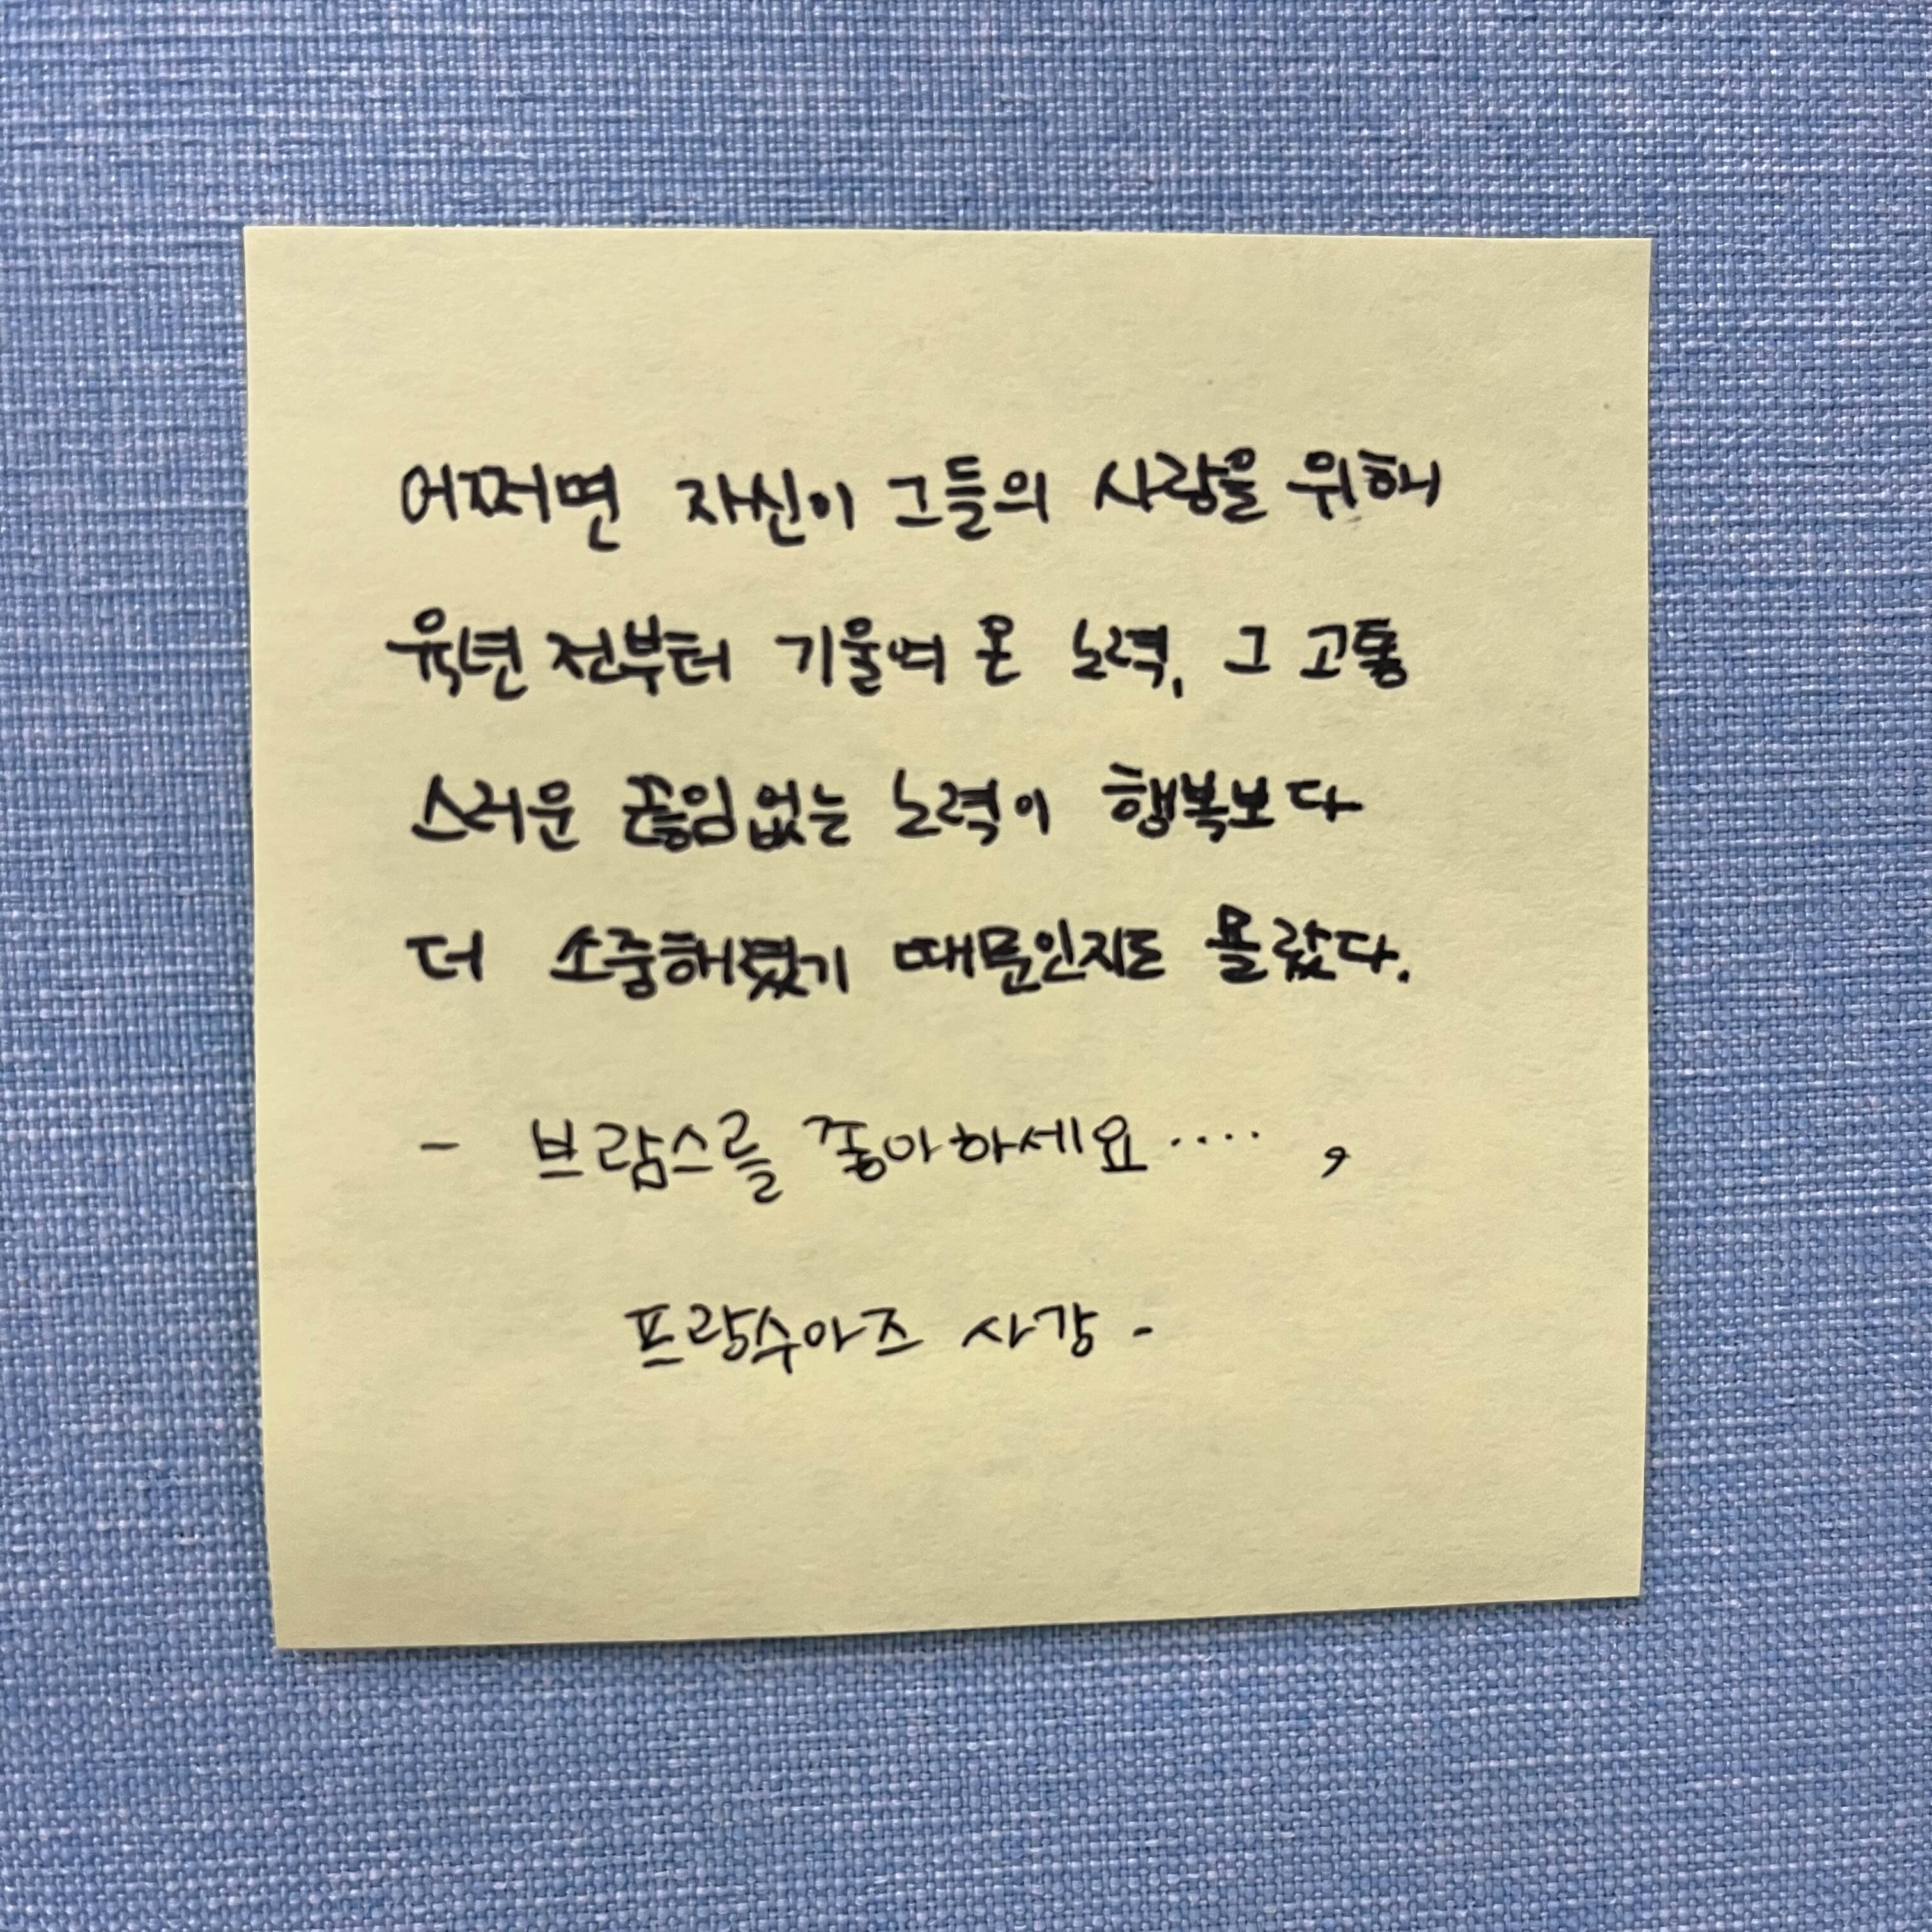 어쩌면 자신이 그들의 사랑을 위해
육년 전부터 기울여 온 노력, 그 고통
스러운 끊임없는 노력이 행복보다
더 소중해졌기 때문인지도 몰랐다.
- 브람스를 좋아하세요 ····,
프랑수아즈 사강 -